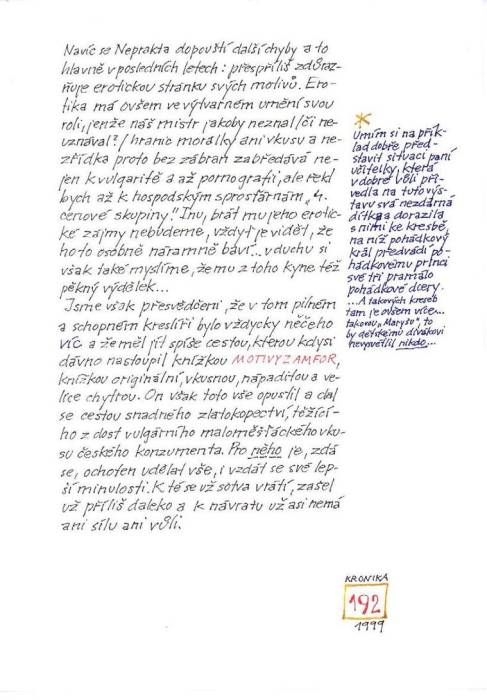 Navíc se Neprakta dopouští další chyby a to
hlavně v posledních letech: přespříliš zdůraz-
ňuje erotickou stránku svých motivů. Ero-
tika má ovšem ve výtvarném umění svou
roli, jenže náš mistr jakoby neznal /či ne-
uznával?/ hranic morálky ani vkusu a ne-
zřídka proto bez zábran zabředává ne-
jen k vulgaritě a až pornografii, ale řekl
bych až k hospodským sprosťárnám „4.
cenové skupiny." Inu, brát mu jeho erotic-
ké zájmy nebudeme, vždyť je vidět, že
ho to osobně náramně baví... v duchu si
však také myslíme, že mu z toho kyne též
pěkný výdělek...
Jsme však přesvědčeni, že v tom pilném
a schopném kreslíři bylo vždycky něčeho
víc a že měl jít spíše cestou, kterou kdysi
dávno nastoupil knížkou MOTIVY Z AMFOR,
knížkou originální, vkusnou, nápaditou a ve-
lice chytrou. On však toto vše opustil a dal
se cestou snadného zlatokopectví, těžící-
ho z dost vulgárního maloměšťáckého vku-
su českého konzumenta. Pro něho je, zdá
se, ochoten udělat vše, i vzdát se své lep-
ší minulosti. K té se už sotva vrátí, zašel
už příliš daleko a k návratu už asi nemá
ani sílu ani vůli.
*
Umím si na přík-
lad dobře před-
stavit situaci paní
učitelky, která
v dobré vůli při-
vedla na tuto výs-
tavu svá nezdárná
dítka a dorazila
s nimi ke kresbě,
na níž pohádkový
král předvádí po-
hádkovému princi
své tři pramálo
pohádkové dcery.
...A takových kreseb
tam je ovšem více...
takovou „Maryšu", to
by dětskému divákovi
nevysvětlil nikdo...
KRONIKA
192
1999